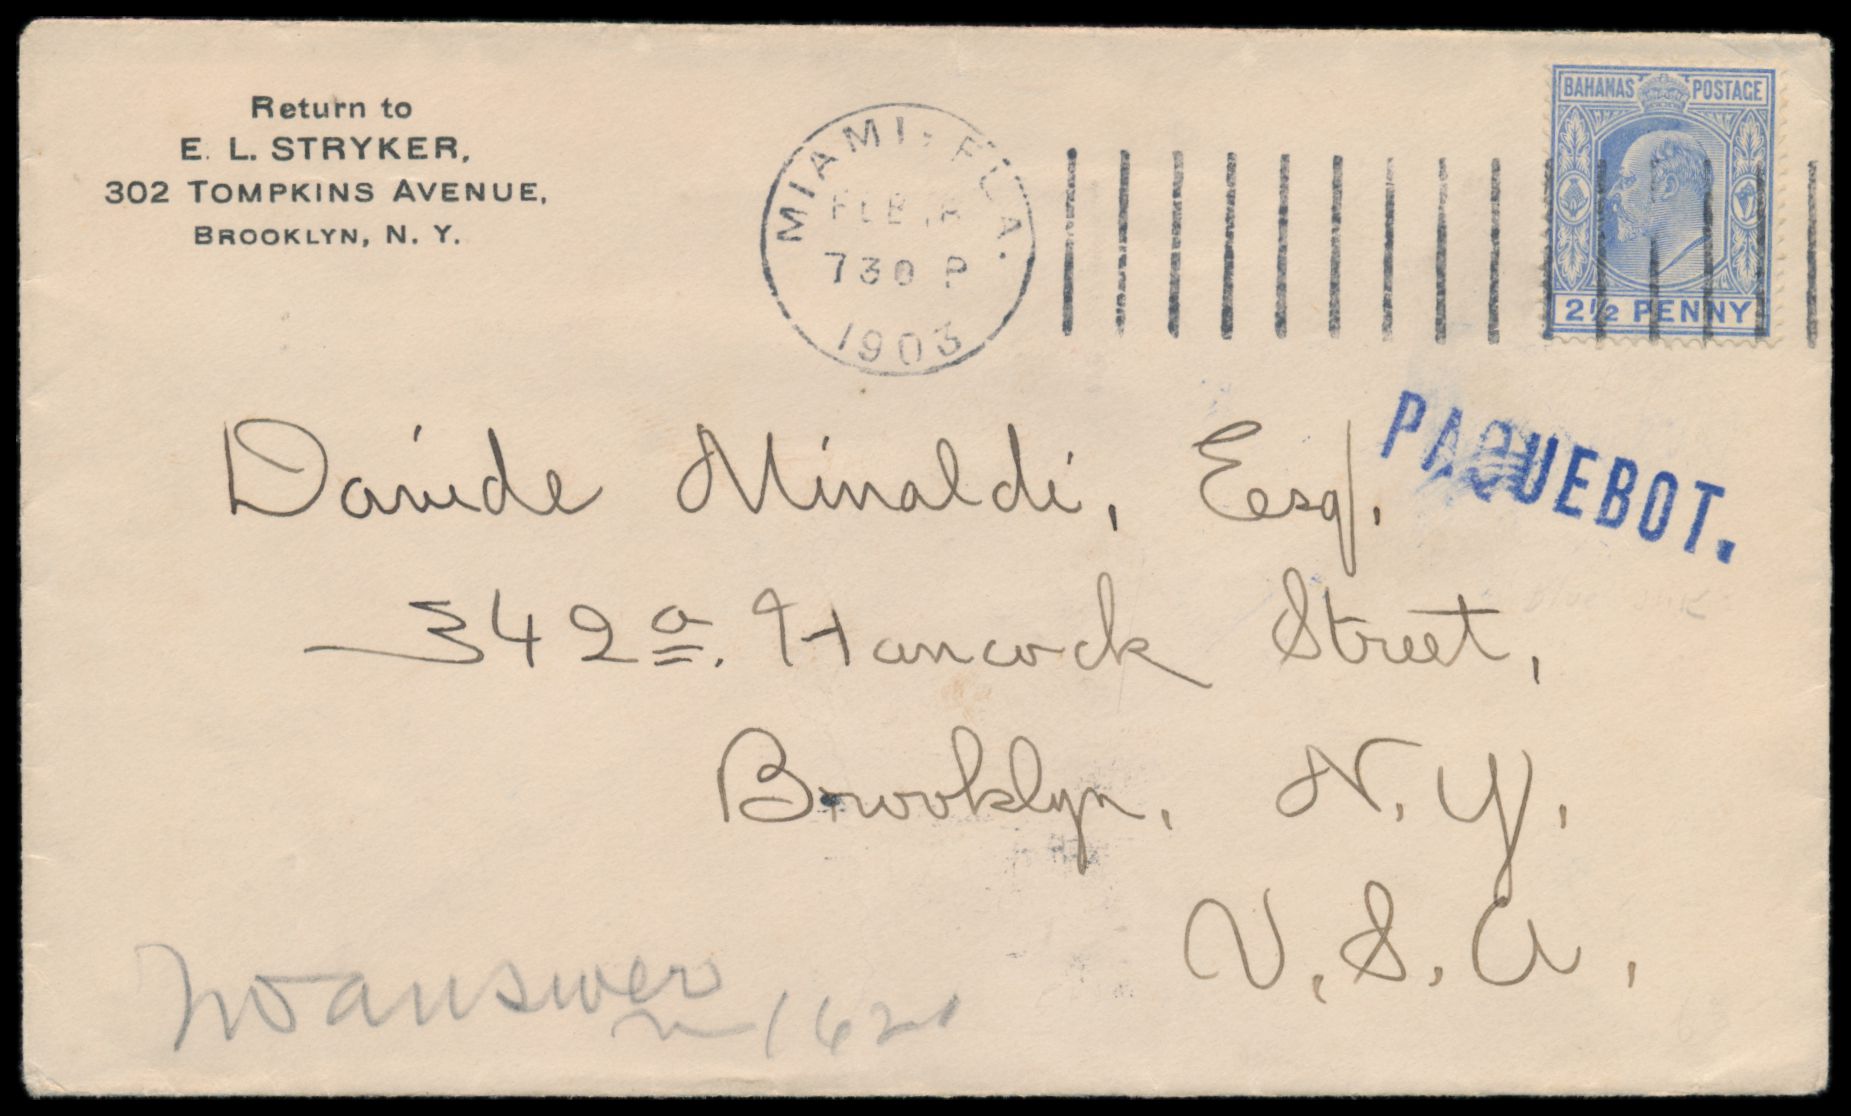 Return to
E. L. STRYKER,
302 TOMPKINS AVENUE,
BROOKLYN, N. Y.
MIAMI, FLA.
FEB
7 30 P
1903
BAHAMAS POSTAGE
2½ PENNY
PAQUEBOT.
Davide Minaldi, Esq.
342a. Hancock Street,
Brooklyn, N. Y.
U. S. A.
No answer